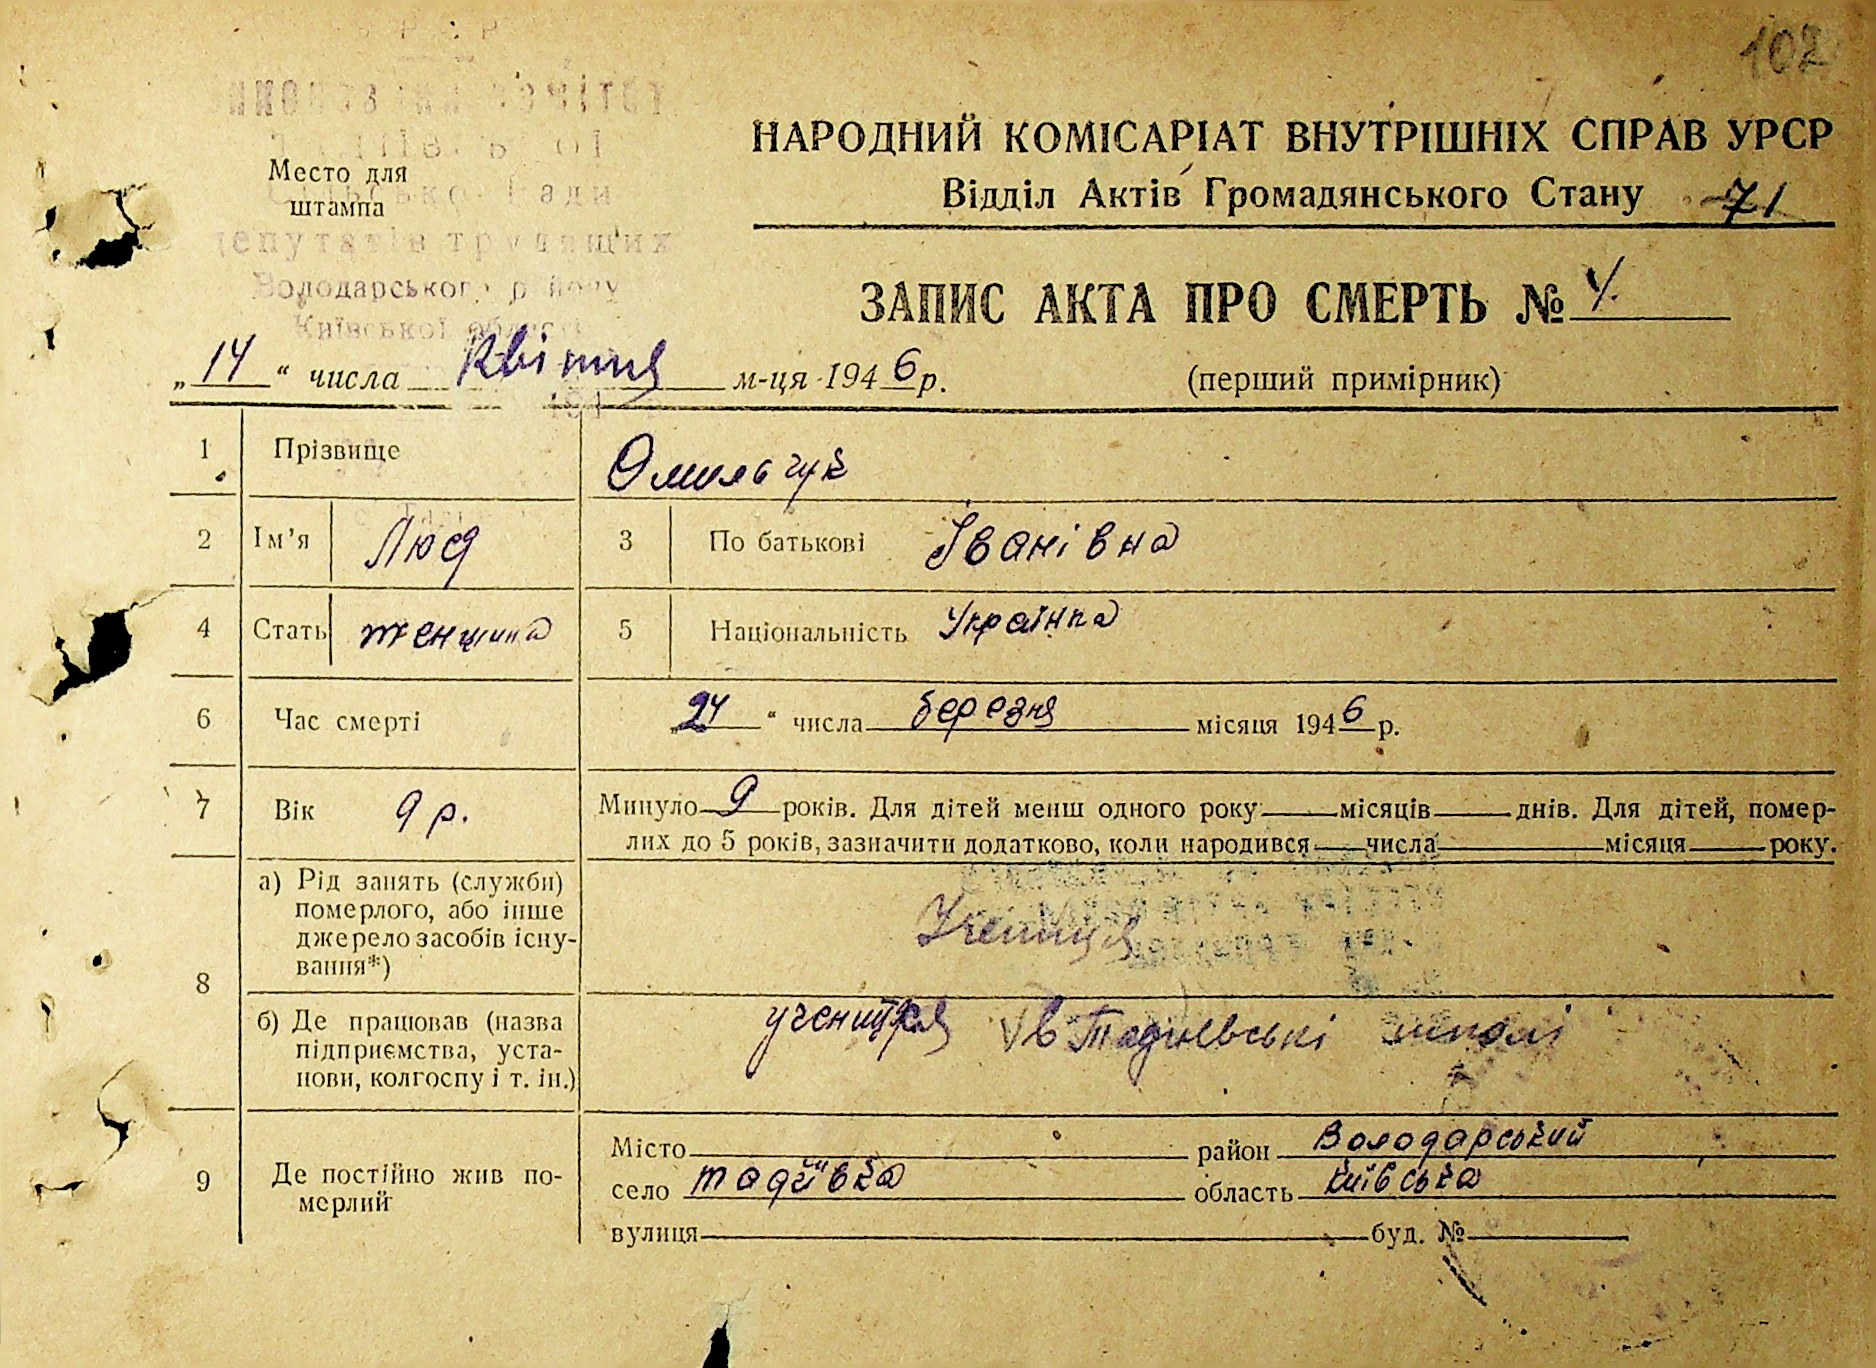 102
Место для
штампа
депутатів трудящих
Володарського району
Київської області
НАРОДНИЙ КОМІСАРІАТ ВНУТРІШНІХ СПРАВ УРСР
Відділ Актів Громадянського Стану 71
ЗАПИС АКТА ПРО СМЕРТЬ № 4
„14“ числа Квітня м-ця 1946 р. (перший примірник)
1 Прізвище Омельчук
2 Ім'я Люд 3 По батькові Іванівна
4 Стать женщина 5 Національність Українка
6 Час смерті „24“ числа березня місяця 1946 р.
7 Вік 9 р. Минуло 9 років. Для дітей менш одного року місяців днів. Для дітей, помер-
лих до 5 років, зазначити додатково, коли народився числа місяця року.
8 а) Рід занять (служби)
померлого, або інше
джерело засобів існу-
вання*) Учениця
б) Де працював (назва
підприємства, уста-
нови, колгоспу і т. ін.) учениця в Тадиевські школі
9 Де постійно жив по-
мерлий
Місто район Володарський
село Тадіївка область Київська
вулиця буд. №